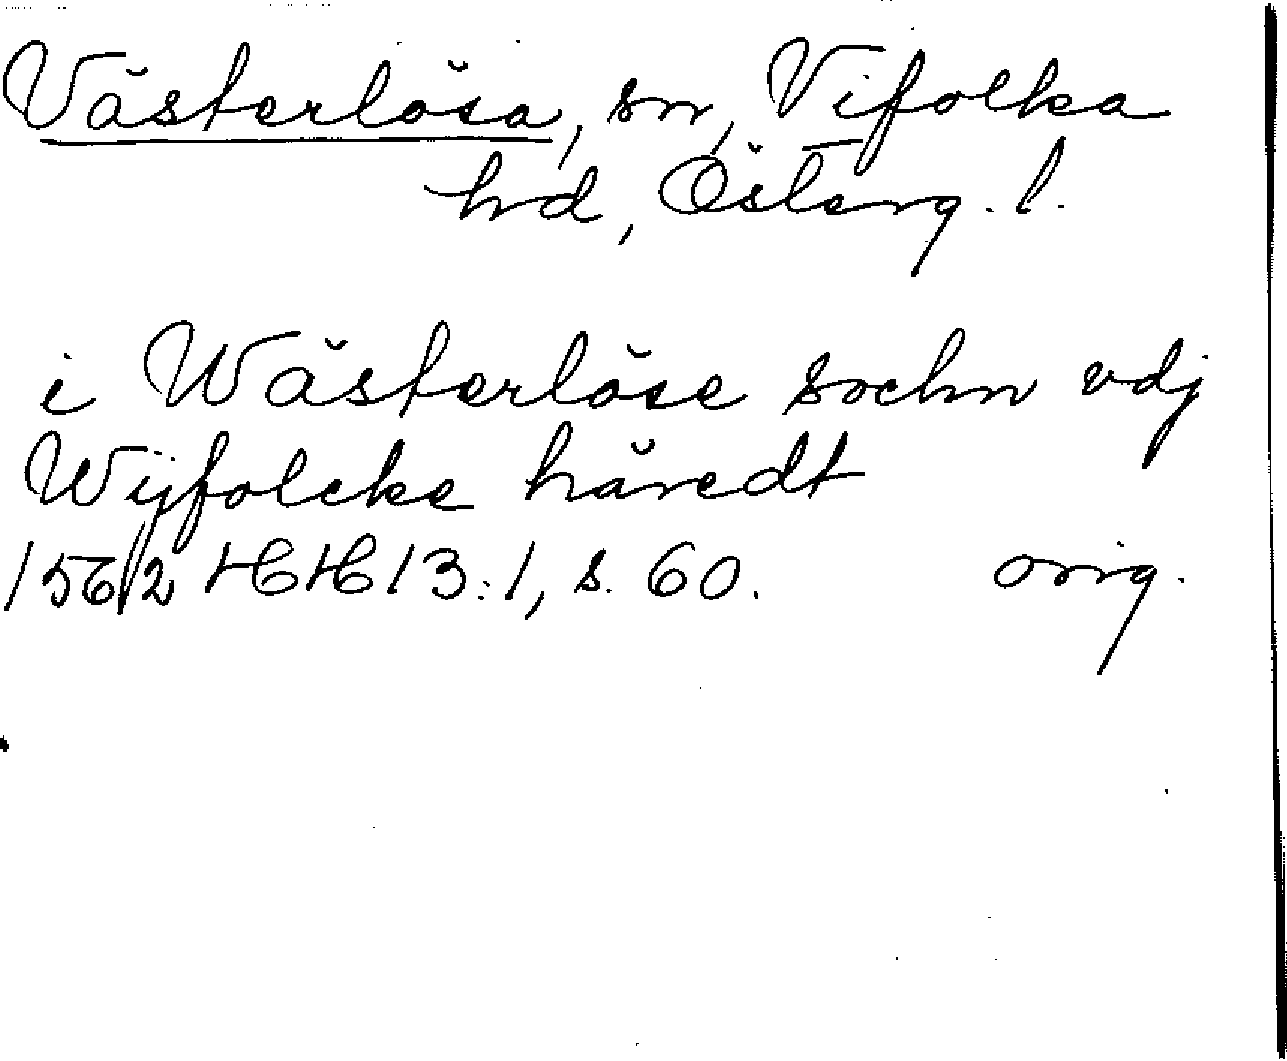 Västerlösa, sn, Vifolka
hd, Österg. l.
i Wästerlöse sochn vdj
Wÿfolcke häredt
1562 HH 13:1, s. 60. orig.